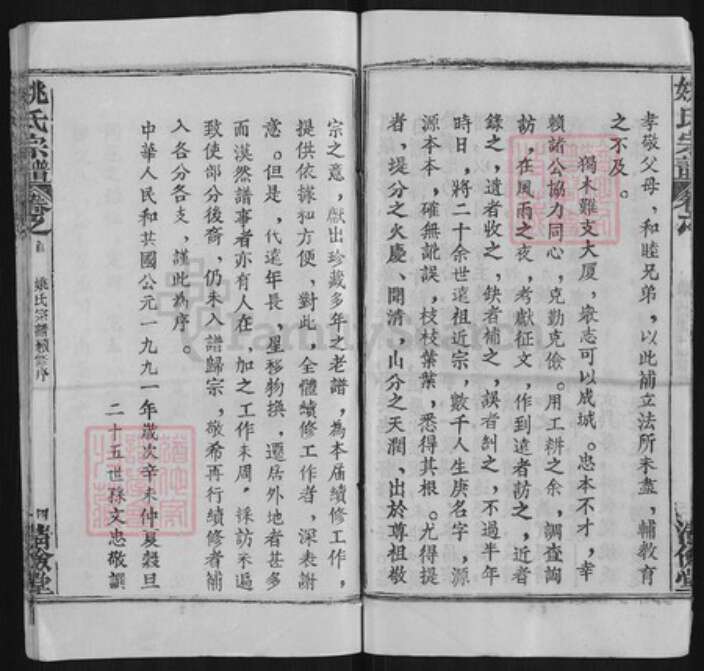 孝敬父母，和睦兄弟，以此補立法所未盡，輔教育
之不及。
獨木難支大厦，衆志可以成城。忠本不才，幸
賴諸公協力同心，克勤克儉。用工耕之余，調查詢
訪，在風雨之夜，考獻征文，作到遠者訪之，近者
錄之，遺者收之，缺者補之，誤者糾之，不過半年
時日，將二十余世遠祖近宗，數千人生庚名字，源
源本本，確無訛誤，枝枝葉葉，悉得其根。尤得提
者，堤分之火慶、開清，山分之天潤、出於尊祖敬
宗之意，獻出珍藏多年之老譜，為本届續修工作，
提供依據和方便，對此，全體續修工作者，深表謝
意。但是，代遠年長，星移物換，遷居外地者甚多
而漠然譜事者亦有人在，加之工作未周，採訪未遍
致使部分後裔，仍未入譜歸宗，敬希再行續修者補
入各分各支，謹此為序。
中華人民和共國公元一九九一年歲次辛未仲夏穀旦
二十五世孫文忠敬譔
姚氏宗譜 卷之首
姚氏宗譜續修序
四
姚氏宗譜
FamilySearch